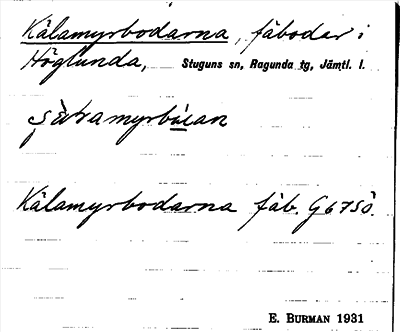 Kälamyrbodarna, fäbodar i
Höglunda, Stuguns sn, Ragunda tg, Jämtl. l.
Kälamyrbodarna fäb. G 67 SÖ.
E. BURMAN 1931